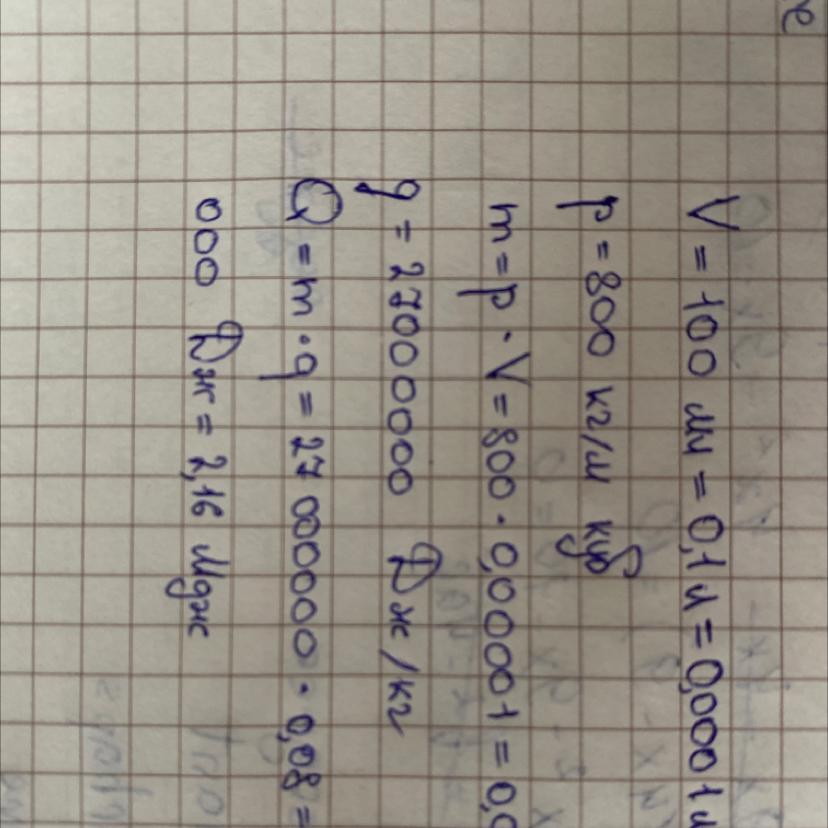 V = 100 мл = 0,1 л = 0,0001 м
p = 800 кг/м куб
m = p · V = 800 · 0,00001 = 0,0
q = 27000000 Дж/кг
Q = m · q = 27 000000 · 0,08 =
000 Дж = 2,16 Мдж